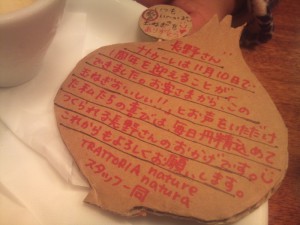 いつも
長野さん
ナトゥーレは11月10日で、
1周年を迎えることがで
きました。お客さまから、この
玉ねぎおいしい!!とお声をいただけ
た私たちの喜びは、毎日丹精込めて
つくられる長野さんのおかげです。
これからもよろしくお願いします。
TRATTORIA nature
natura
スタッフ一同